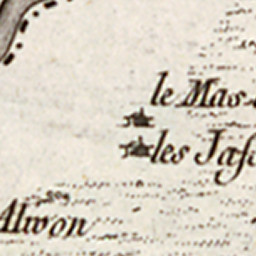 le Mas
les
Alwon